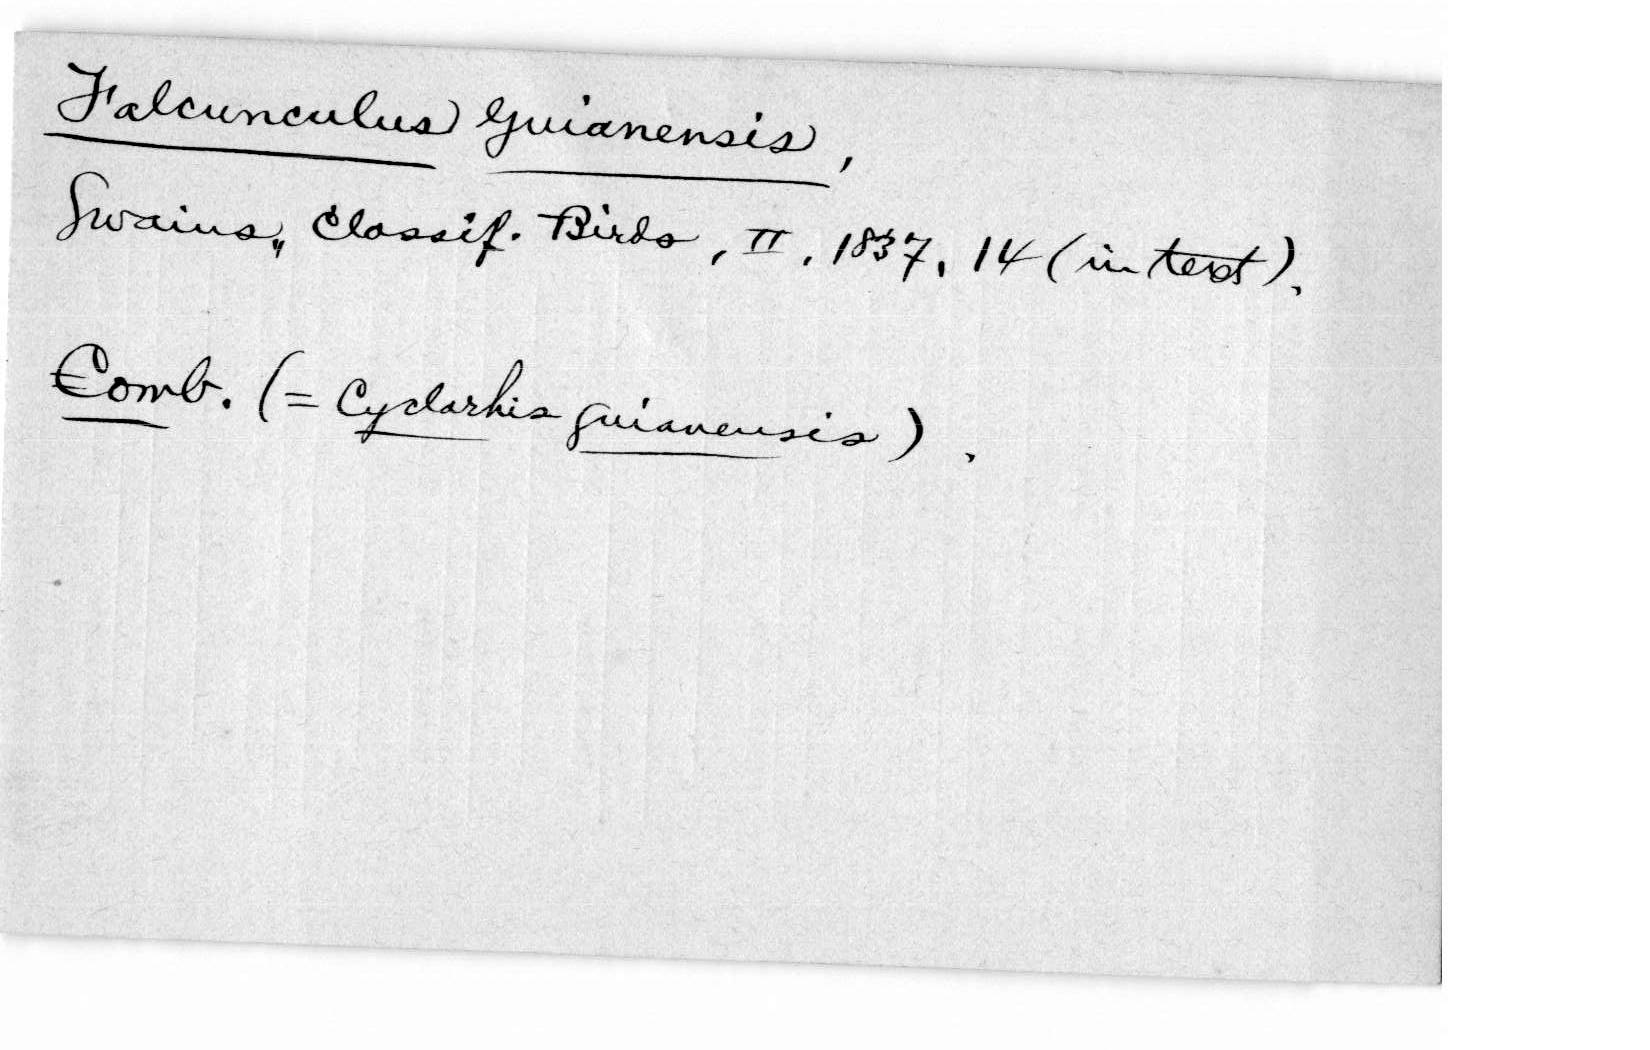 Falcunculus guianensis,
Swains., Classif. Birds, II, 1837, 14 (in text).
Comb. (= Cyclarhis guianensis).